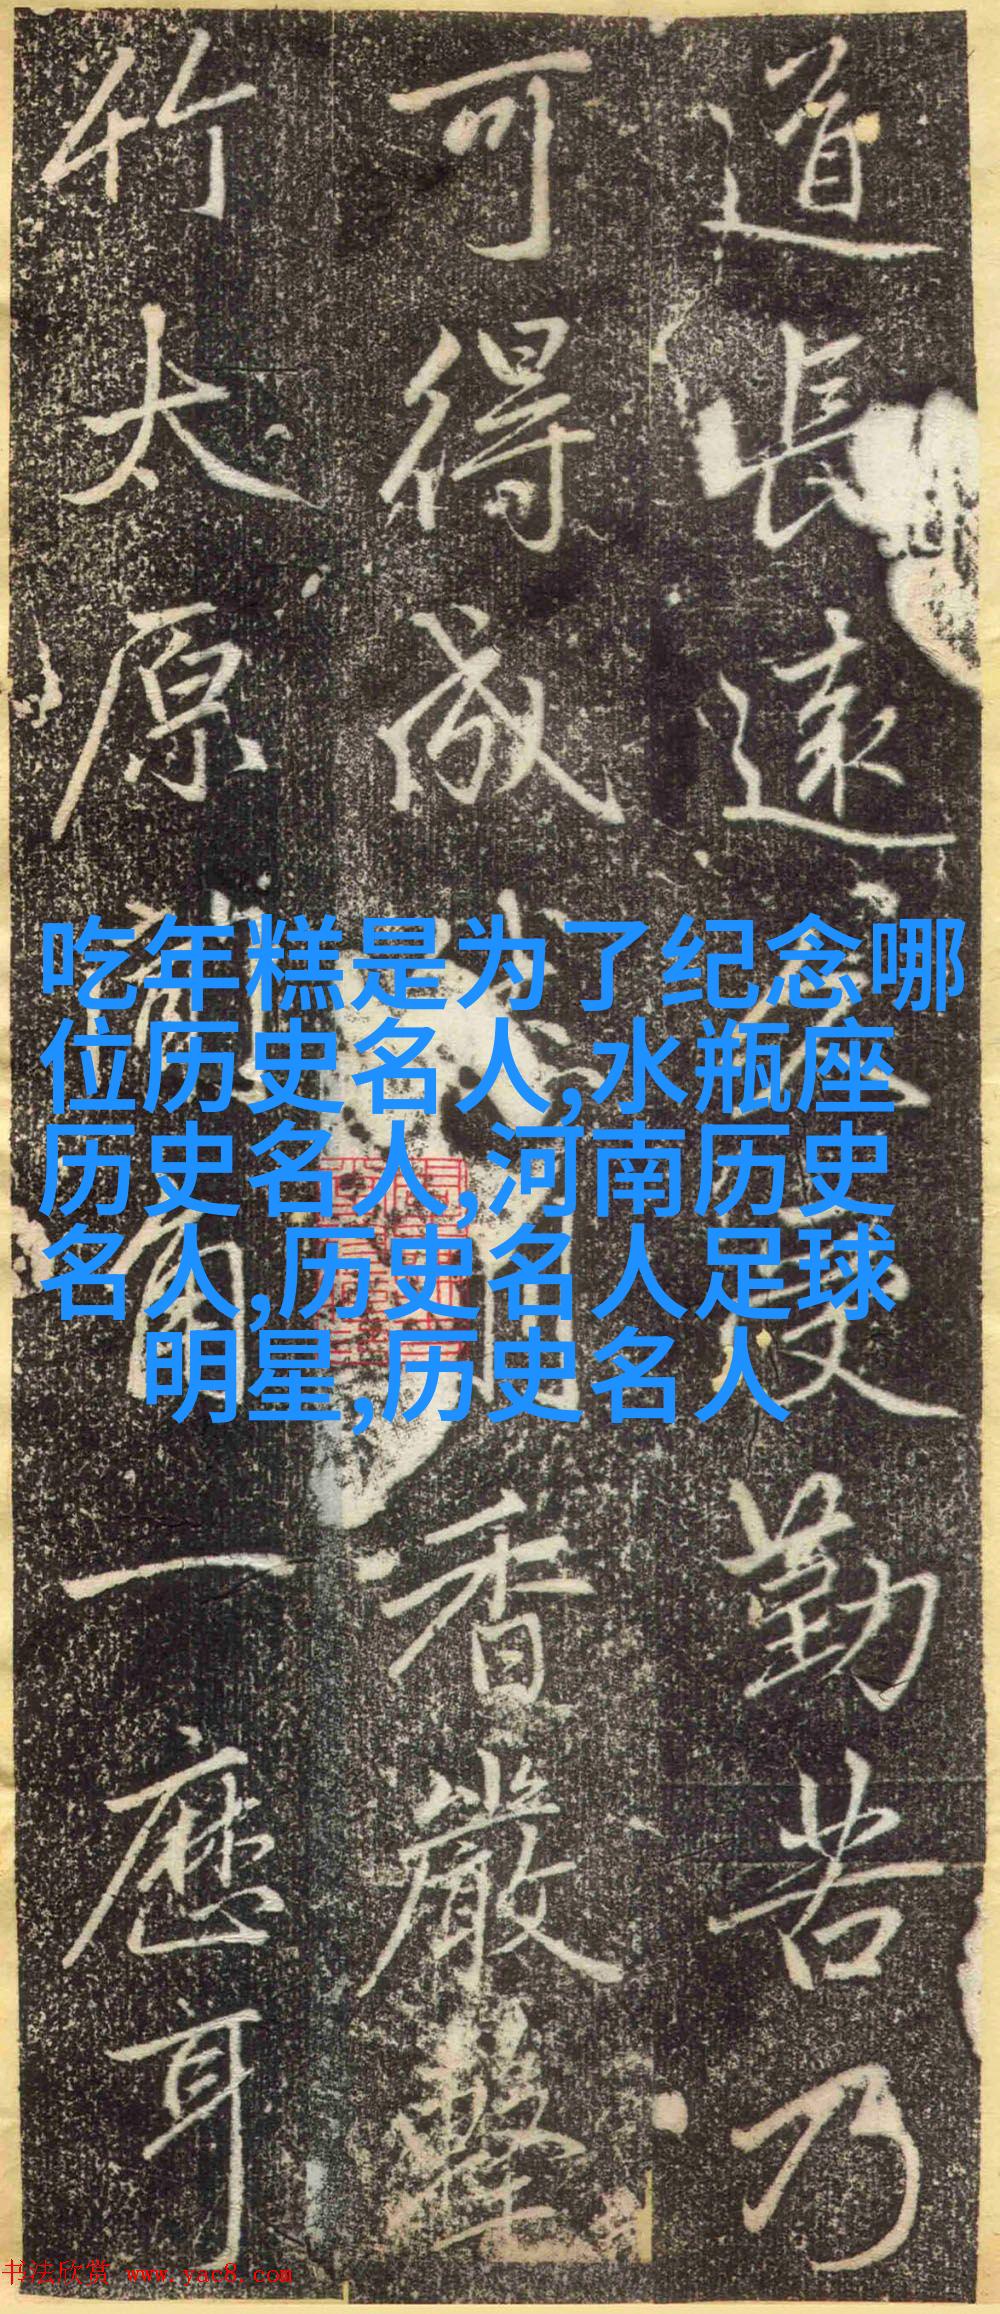 道長遠受勤苦乃
可得成香嚴擊
竹太原一應耳
吃年糕是为了纪念哪
位历史名人,水瓶座
历史名人,河南历史
名人,历史名人足球
明星,历史名人
书法欣赏 www.yac8.com